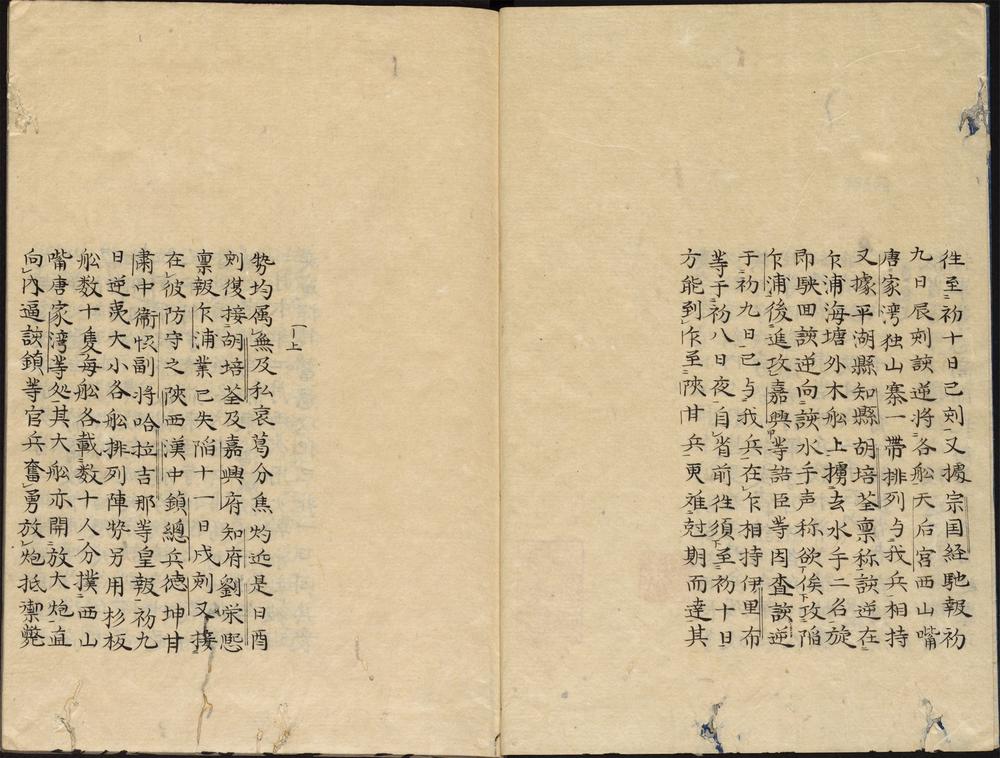 徃至初十日巳刻又據宗国経馳報初
九日辰刻該逆將各舩天后宮西山嘴
唐家湾独山寨一帶排列与我兵相持
又據平湖縣知縣胡培荃禀称該逆在
乍浦海塘外木舩上擄去水手二名旋
即駛囬該逆向該水手声称欲俟攻陥
乍浦後進攻嘉興等語臣等因査該逆
于初九日已与我兵在乍相持伊里布
等于初八日夜自省前徃須至初十日
方能到乍至陝甘兵更难尅期而達其
勢均属無及私哀葛分焦灼近是日酉
刻復接胡培荃及嘉興府知府劉栄熈
禀報乍浦業已失陥十一日戌刻又接
在彼防守之陝西漢中鎮總兵德坤甘
肅中衛恊副將哈拉吉那等皇報初九
日逆夷大小各舩排列陣勢另用杉板
舩数十隻每舩各載数十人分撲西山
嘴唐家湾等処其大舩亦開放大炮直
向内逼該鎮等官兵奮勇放炮抵禦斃
上